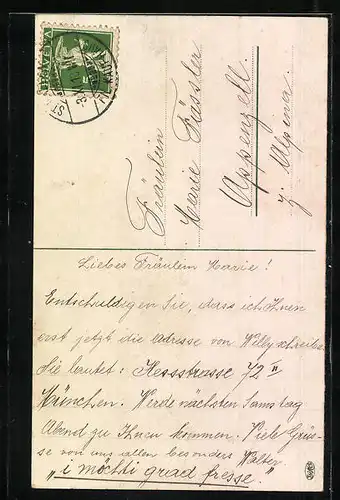 HELVETIA
5
Fräulein
Marie Füssler
Appenzell.
z. Alpina.
Liebes Fräulein Marie!
Entschuldigen Sie, dass ich Ihnen
erst jetzt die adresse von Willy schreibe
Sie lautet: Hessstrasse 72 II
München. Werde nächsten Samstag
Abend zu Ihnen kommen. Viele Grüs-
se von uns allen besonders Walter.
"i möchti grad fresse."